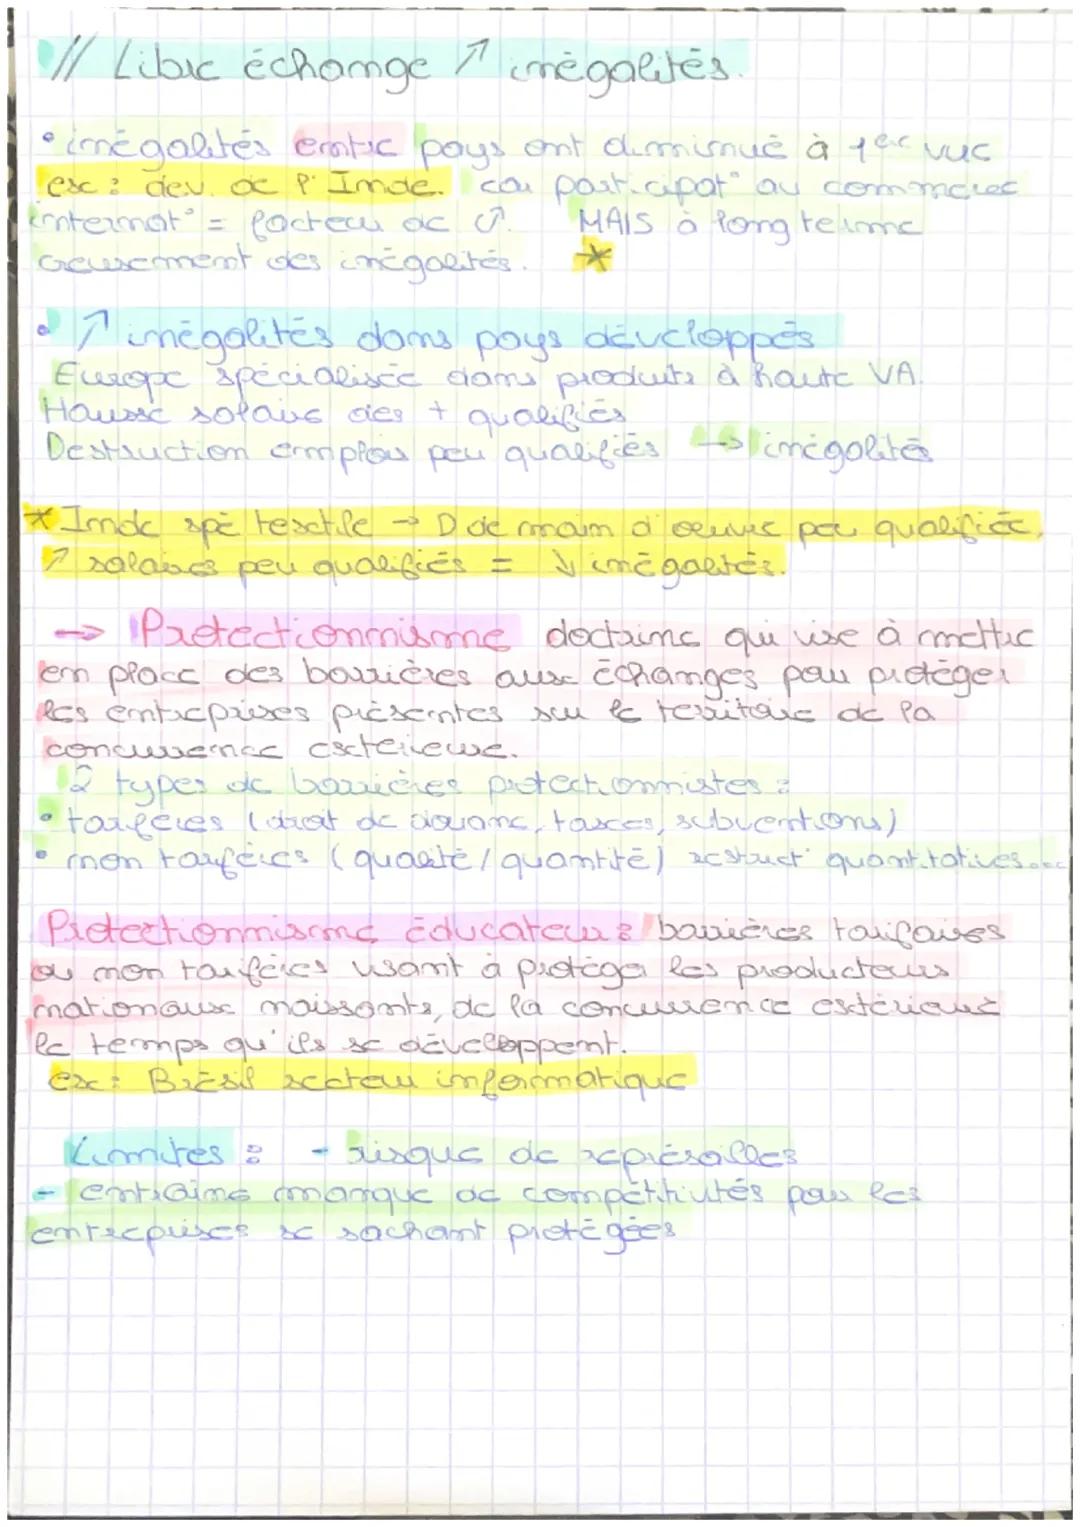 // Libre échange ↗ inégalités.
• inégalités entre pays ont diminué à 1ère vue
ex : dev. de l'Inde. car participat° au commerce
internat° = facteur de ↗. MAIS à long terme
creusement des inégalités. *
• ↗ inégalités dans pays développés
Europe spécialisée dans produits à haute VA.
Hausse salaire des + qualifiés
Destruction emplois peu qualifiés → inégalités
* Inde spé textile → D de main d'œuvre peu qualifiée,
↗ salaires peu qualifiés = ↓ inégalités.
→ Protectionnisme doctrine qui vise à mettre
en place des barrières aux échanges pour protéger
les entreprises présentes sur le territoire de la
concurrence extérieure.
2 types de barrières protectionnistes :
• tarifères (droit de douane, taxes, subventions)
• non tarifères (qualité/quantité) restrict° quantitatives...
Protectionnisme éducateur : barrières tarifaires
ou non tarifères visant à protéger les producteurs
nationaux naissants, de la concurrence extérieure
le temps qu'ils se développent.
ex : Brésil secteur informatique
Limites : - risque de représailles
- entraine manque de compétitivités pour les
entreprises se sachant protégées